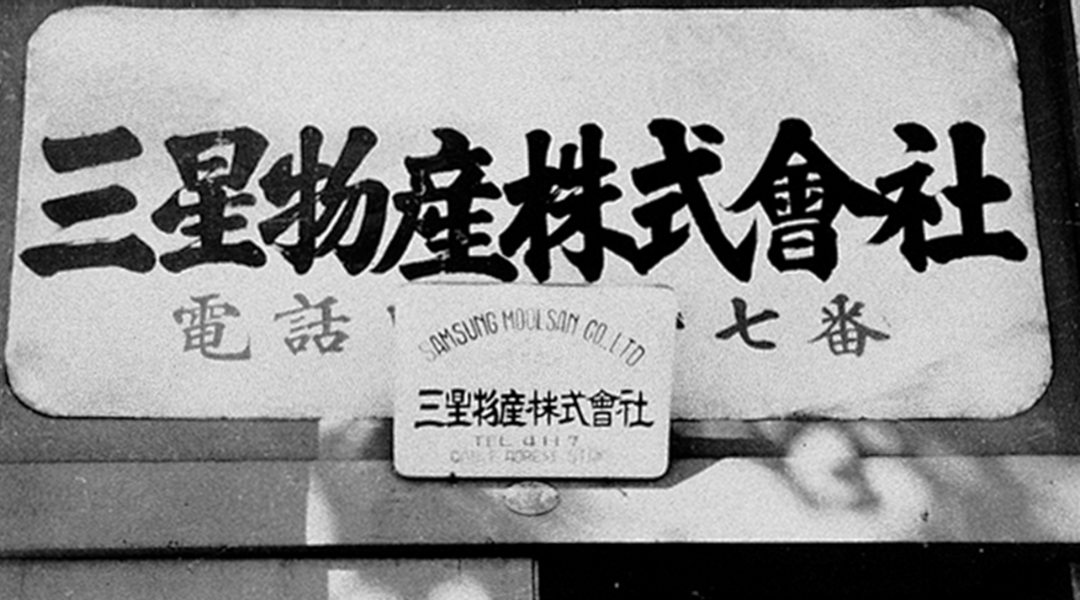 三星物産株式會社
電話 七番
SAMSUNG MOOLSAN CO.LTD
三星物産株式會社
TEL 4117